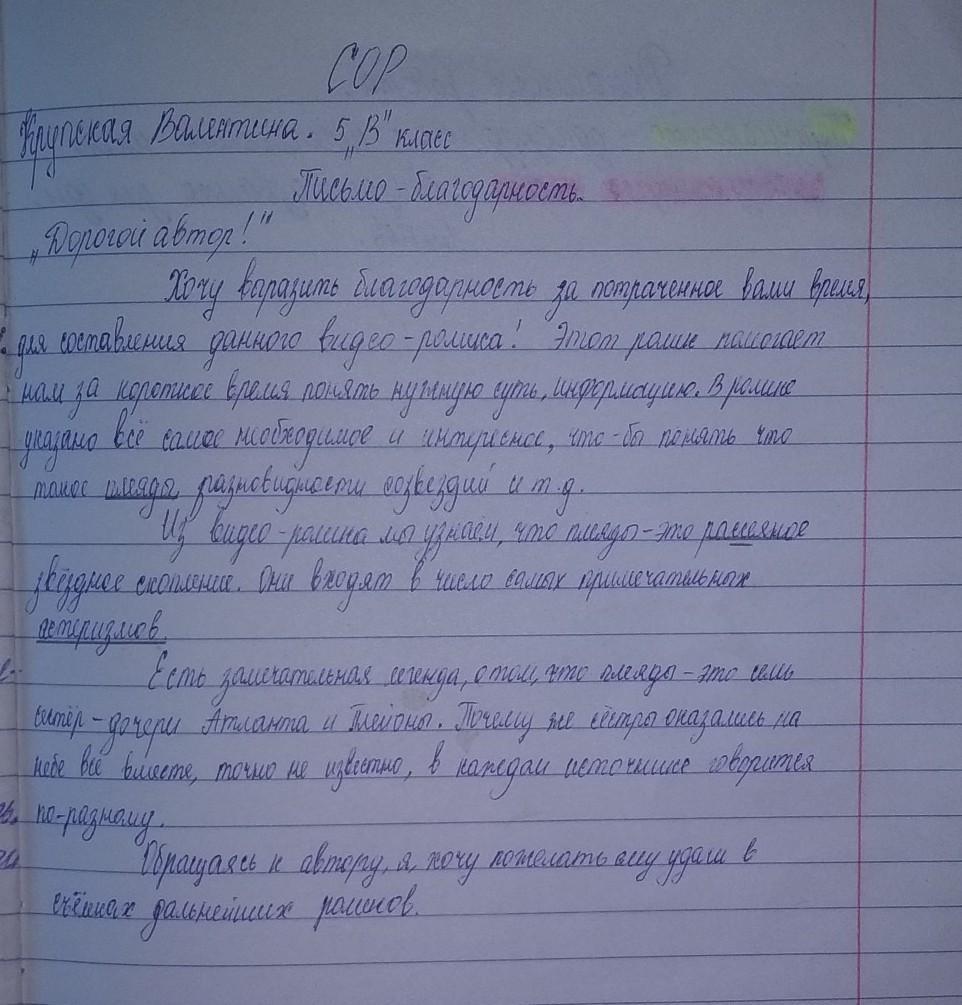 СОР
Крупская Валентина. 5 „В" класс
Письмо-благодарность.
„Дорогой автор!"
Хочу варазить благодарность за потраченное вами время,
для составления данного видео-ролика! Этот ролик помогает
нам за короткое время понять нужную суть, информацию. В ролике
указано всё самое необходимое и интересное, что-бы понять что
такое плеяды, разновидности созвездий и т.д.
Из видео-ролика мы узнаём, что плеяды-это рассеяное
звёздное скопление. Они входят в число самых примечательных
астеризмов.
Есть замечательная легенда, о том, что плеяды-это семь
сестёр-дочери Атланта и Плейоны. Почему же сёстры оказались на
небе все вместе, точно не известно, в каждом источнике говорится
по-разному.
Обращаясь к автору, я, хочу пожелать ему удачи в
съёмках дальнейших роликов.